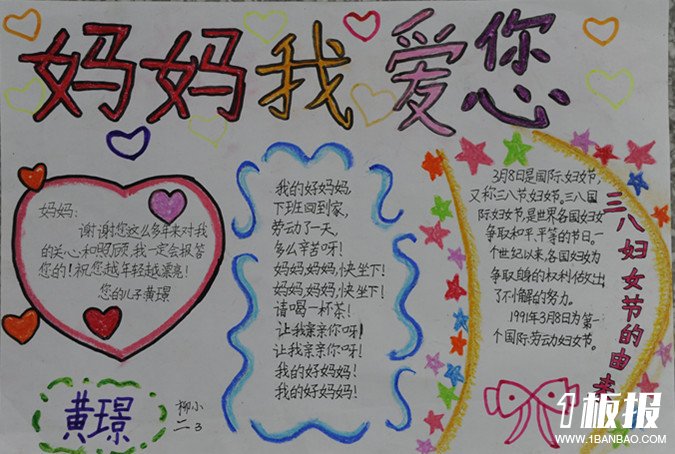 妈妈我爱您
妈妈：
谢谢您这么多年来对我
的关心和照顾，我一定会报答
您的！祝您越年轻越漂亮！
您的儿子黄璟
黄璟
柳小
二3
我的好妈妈，
下班回到家，
劳动了一天，
多么辛苦呀！
妈妈，妈妈，快坐下！
妈妈，妈妈，快坐下！
请喝一杯茶！
让我亲亲你呀！
让我亲亲你呀！
我的好妈妈！
我的好妈妈！
3月8日是国际妇女节，
又称三八节，妇女节。三八国
际妇女节，是世界各国妇女
争取和平、平等的节日。一
个世纪以来，各国妇女为
争取自身的权利做出
了不懈的努力。
1991年3月8日为第一
个国际劳动妇女节。
三八妇女节的由来
1板报
WWW.1BANBAO.COM